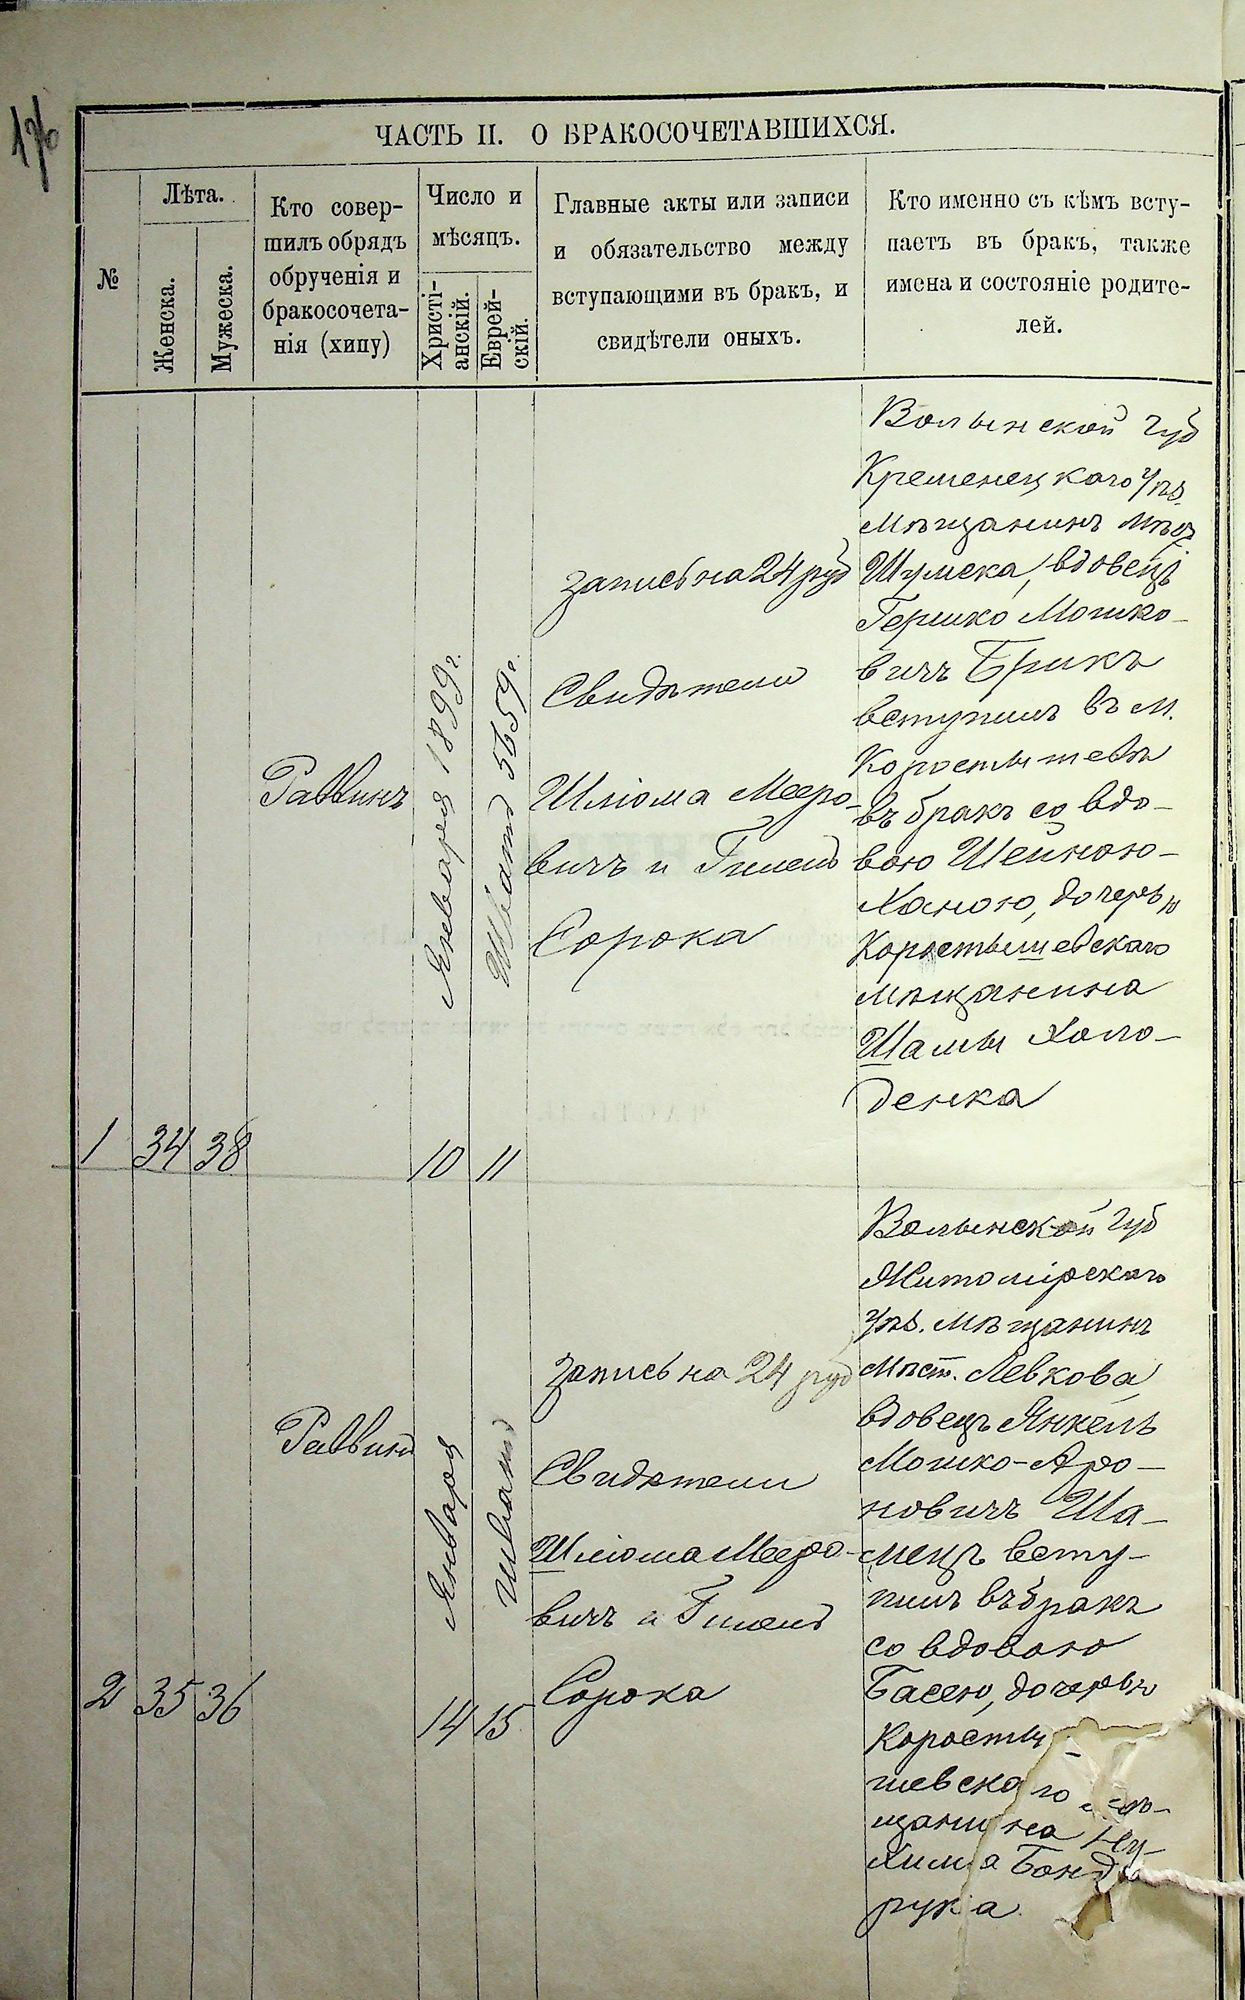 176
ЧАСТЬ II. О БРАКОСОЧЕТАВШИХСЯ.
№
Лѣта.
Женска.
Мужеска.
Кто совер-
шилъ обрядъ
обрученія и
бракосочета-
нія (хипу)
Число и
мѣсяцъ.
Христі-
анскій.
Еврей-
скій.
Главные акты или записи
и обязательство между
вступающими въ бракъ, и
свидѣтели оныхъ.
Кто именно съ кѣмъ всту-
паетъ въ бракъ, также
имена и состояніе родите-
лей.
1
34
38
Раввинъ
Января 1899г.
10
Шватъ 5659г.
11
Запись на 24 руб
Свидѣтели
Шлiома Мееро-
вичъ и Гилель
Сорока
Волынской губ
Кременецкаго уѣз.
Мѣщанинъ мѣст
Шумска, вдовецъ
Гершко Мошко-
вичъ Брикъ
вступилъ въ м.
Коростышевѣ
въ бракъ со вдо-
вою Шейною-
Ханою, дочерью
Коростышевскаго
мѣщанина
Шамы Холо-
денка
2
35
36
Раввинъ
Января
14
Шватъ
15
Запись на 24 руб
Свидѣтели
Шлiома Мееро-
вичъ и Гилель
Сорока
Волынской губ
Житомірскаго
уѣз. мѣщанинъ
мѣст. Левкова
вдовецъ Янкель
Мошко-Аро-
новичъ Ша-
мецъ всту-
пилъ въ бракъ
со вдовою
Басею, дочерью
Коросты-
шевскаго мѣ-
щанина Ну-
хима Бонда
рука